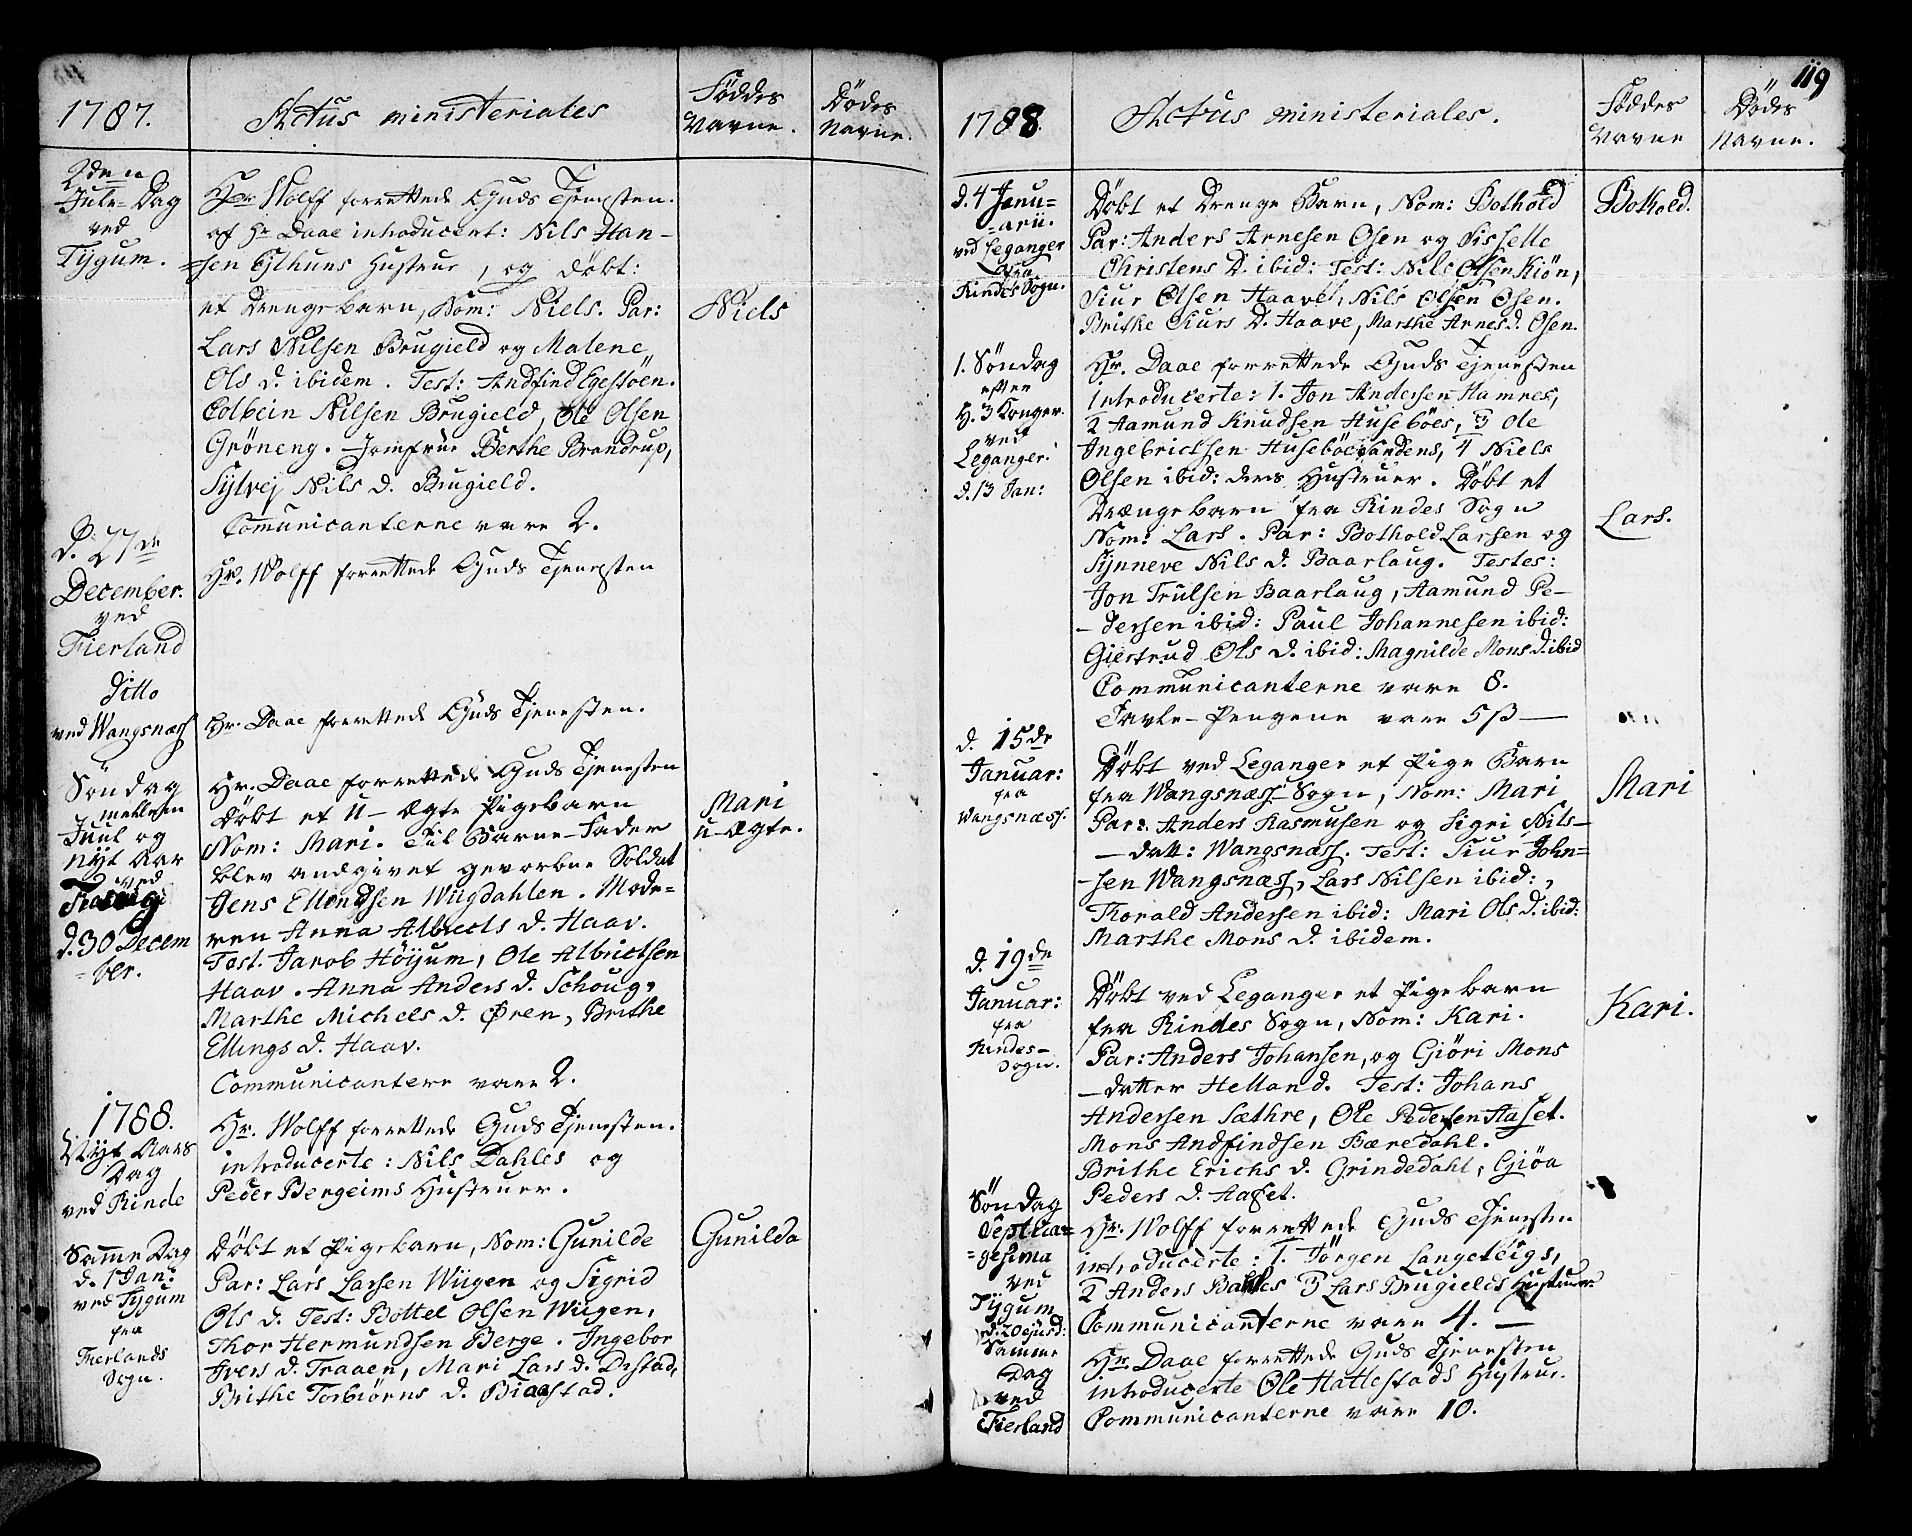 1787.
Actus ministeriales
Föddes Navne.
Dödes Navne.
2den
Jule-Dag
ved
Tygum.
Hr Wolff forrettede Guds Tjenesten.
af Hr Daae introduceret: Nils Han-
-sen Eithuns Hustrue, og döbt:
et Drengebarn, Nom: Niels. Par:
Niels
Lars Nilsen Brugield og Malene
Ols D. ibidem. Test: Andfind Egessöen.
Colbein Nilsen Brugield, Ole Olsen
Gröneng. Jomfrue Berthe Brandrup,
Sylvej Nils D. Brugield.
Comunicanterne vare 2.
d. 27de
December.
ved
Fierland
Hr. Wolff forrettede Guds Tjenesten
ditto
ved Wangsnæss
Hr. Daae forrettede Guds Tjenesten.
Söndag
mellem
Juul og
Nyt Aar
ved
d. 30 Decem
-ber.
Hr. Daae forrettede Guds Tjenesten
Döbt et U-ægte Pigebarn
Mari
u-ægte.
Nom: Mari. Til Barne-Fader
blev andgivet gevorbne Soldat
Jens Ellendsen Wiigdahlen. Mode-
ren Anna Albrects D. Haav.
Test. Jacob Höyum, Ole Albrictsen
Haav. Anna Anders D. Schoug,
Marthe Michels D. Øren, Brithe
Ellings D. Haav.
Communicantere vare 2.
1788.
Nyt Aars
Dag
ved Rinde
Hr. Wolff forrettede Guds Tjenesten.
introducerte: Nils Dahles og
Peder Bergeims Hustruer.
Samme Dag
d. 1 Jan:
ved Tygum
fra
Fierlands
Sogn.
Döbt et Pigebarn, Nom: Gunilde
Gunilda
Par: Lars Larsen Wiigen og Sigrid
Ols D. Test: Bottel Olsen Wiigen,
Thor Hermundsen Berge. Ingebor
Ivers D. Traaen, Mari Lars D. Distad,
Brithe Torbiörns D. Biaastad.
119
1788.
Actus ministeriales.
Föddes Navne
Dödes Navne.
d. 4 Janu-
-arii.
ved Leganger
fra
Rindes Sogn.
Döbt et Drenge Barn, Nom: Bothold
Bothold.
Par: Anders Arnesen Osen og Sisselle
Christens D. ibid: Test: Nils Olsen Kiön,
Siur Olsen Haave, Nils Olsen Osen.
Brithe Siurs D. Haave, Marthe Arnes d. Osen.
1. Söndag
efter
H. 3 Konger.
ved
Leganger.
d. 13 Jan:
Hr. Daae forrettede Guds Tjenesten
introducerte: 1. Jon Andersen Hamres,
2 Aamund Knudsen Huseböes, 3 Ole
Ingebrictsen Huseböevandens, 4 Niels
Olsen ibid: deres Hustruer. Döbt et
Drængebarn fra Rindes Sogn
Lars.
Nom: Lars. Par: Bothold Larsen og
Synneve Nils D. Baarlaug. Testes:
Jon Trulsen Baarlaug, Aamund Pe-
-dersen ibid: Paul Johannesen ibid:
Giertrud Ols D. ibid: Magnilde Mons D. ibid
Communicanterne vare 8.
Tavle-Pengene vare 5 ß
d. 15de
Januar:
fra
Wangsnæss.
Döbt ved Leganger et Pige Barn
fra Wangsnæss Sogn, Nom: Mari
Mari
Par: Anders Rasmusen og Sigri Nils-
-datt: Wangsnæss. Test: Siur John-
-sen Wangsnæss, Lars Nilsen ibid:,
Thorald Andersen ibid: Mari Ols D. ibid:
Marthe Mons D. ibidem.
d. 19de
Januar:
fra
Rindes-
Sogn.
Döbt ved Leganger et Pigebarn
fra Rindes Sogn, Nom: Kari.
Kari.
Par: Anders Johansen, og Giöri Mons
-datter Helland. Test: Johans
Andersen Sæthre, Ole Pedersen Haset.
Mons Andfindsen Færedahl.
Brithe Erichs D. Grindedahl, Giöa
Peders D. Haset.
Söndag
Septua-
-gesima
ved
Tygum
d. 20 ejusd:
Hr. Wolff forrettede Guds Tjenesten
introducerte: 1. Jörgen Langeteigs,
2 Anders Bahles 3 Lars Brugields Hustruer
Communicanterne vare 4.
Samme
Dag
ved
Fierland
Hr. Daae forrettede Guds Tjenesten
introducerte Ole Hattestads Hustrue.
Communicanterne vare 10.